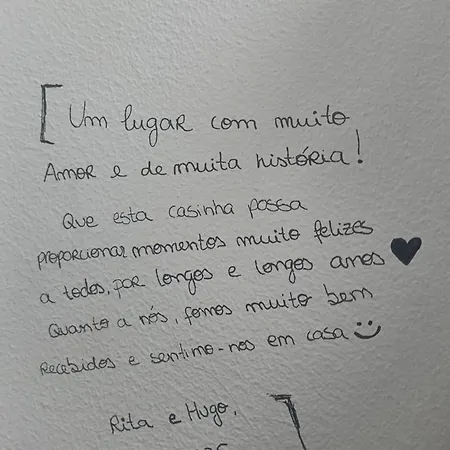 [ Um lugar com muito
Amor e de muita história!
Que esta casinha possa
proporcionar momentos muito felizes
a todos, por longos e longos anos ♥
Quanto a nós, fomos muito bem
Recebidos e sentimo-nos em casa :)
Rita e Hugo, ]